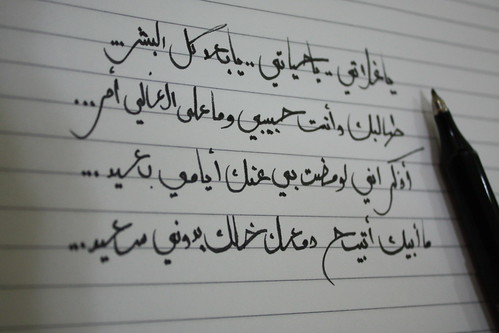 يا غلاتي .. يا حياتي .. يا بعد كل البشر...
طالبك وأنت حبيبي وما على الغالي أمر...
أذكر اني لو مضت بي عنك أيامي بعيد...
ما أبيك أتبيح دمعك خلك بدوني سعيد...